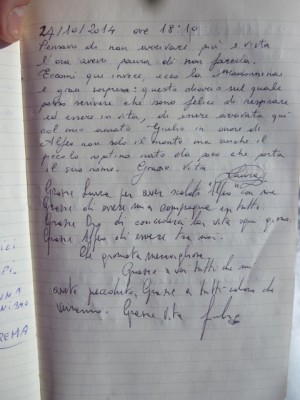 24/10/2014 ore 18:10
Pensavo di non arrivare più e vista
l'ora avevo paura di non farcela.
Eccomi qui invece, ecco la Madonnina
e gran sorpresa: questo diario sul quale
posso scrivere che sono felice di respirare
ed essere in vita, di essere arrivata qui
col mio amato Giulio in onore di
Alfeo non solo il monte ma anche il
piccolo nato da poco che porta
il suo nome. Grazie Vita
Laura
Grazie Laura per aver scalato Alfeo con me
Grazie di essere mia compagna in tutto
Grazie Dio di concederci la vita ogni giorno
Grazie Alfeo di essere tra noi.
Che giornata meravigliosa
Grazie a voi tutti che mi
avete preceduto, Grazie a tutti coloro che
verranno. Grazie Vita
REMA